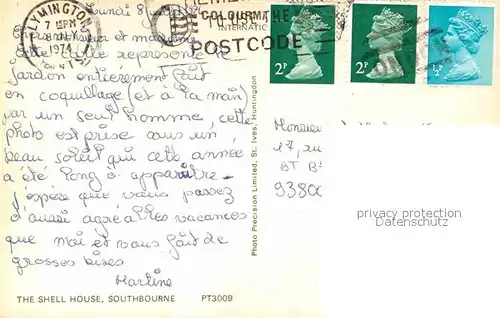 LYMINGTON
7 15 PM
8 JLY
1974
HANTS
REMEMBER
THE
POSTCODE
COLOURMA
INTERNATIC
2P
2P
½P
Lundi 8
et
cette carte représente le
jardon entièrement fait
en coquillage (et à la main)
par un seul homme, cette
photo est prise sous un
beau soleil qui cette année
a été long à apparaître.
J'espère que vous passez
d'aussi agréables vacances
que moi et vous fait de
grosses bises
Martine
Monsieur
17, rue
BT B
9380
privacy protection
Datenschutz
Photo Precision Limited, St. Ives, Huntingdon
THE SHELL HOUSE, SOUTHBOURNE PT3009